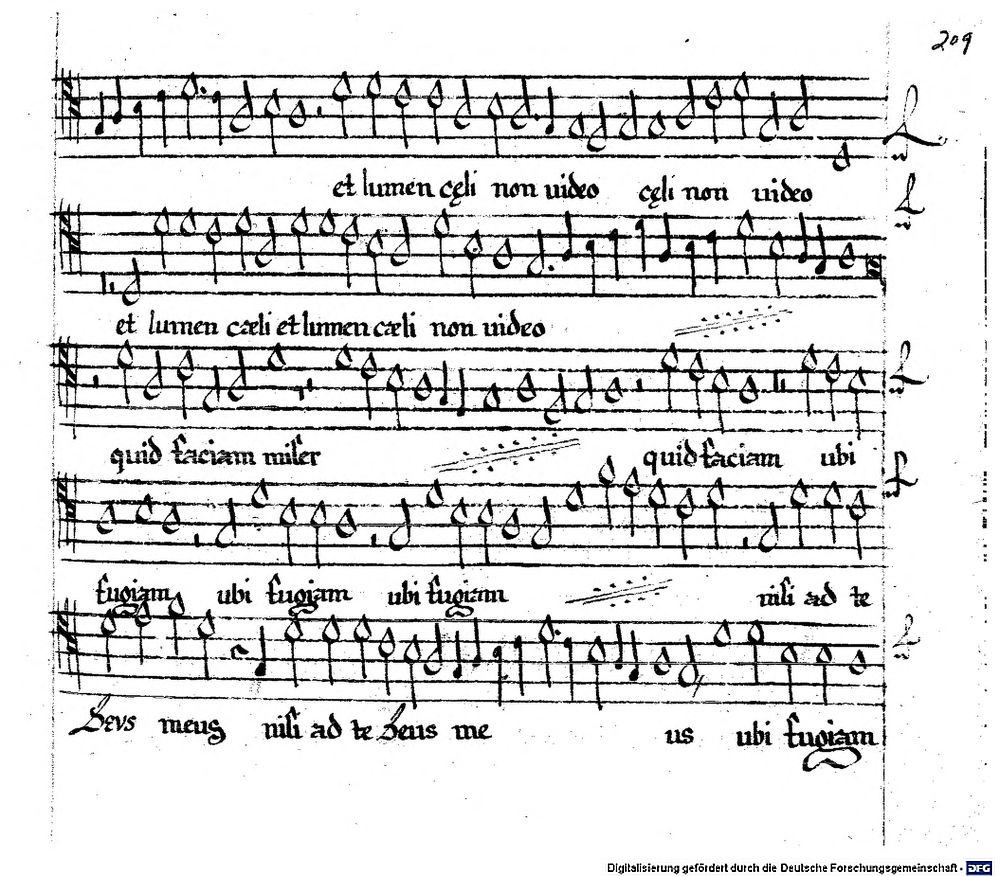 209
et lumen cęli non video cęli non video
et lumen cæli et lumen cæli non video
quid faciam miser quid faciam ubi
fugiam ubi fugiam ubi fugiam nisi ad te
Deus meus nisi ad te Deus me us ubi fugiam
Digitalisierung gefördert durch die Deutsche Forschungsgemeinschaft - DFG